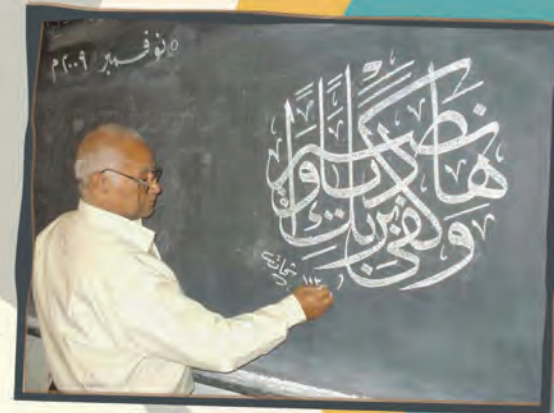 ٥ نوفمبر ٢٠٠٩م
وكفى بربك هاديا ونصيرا